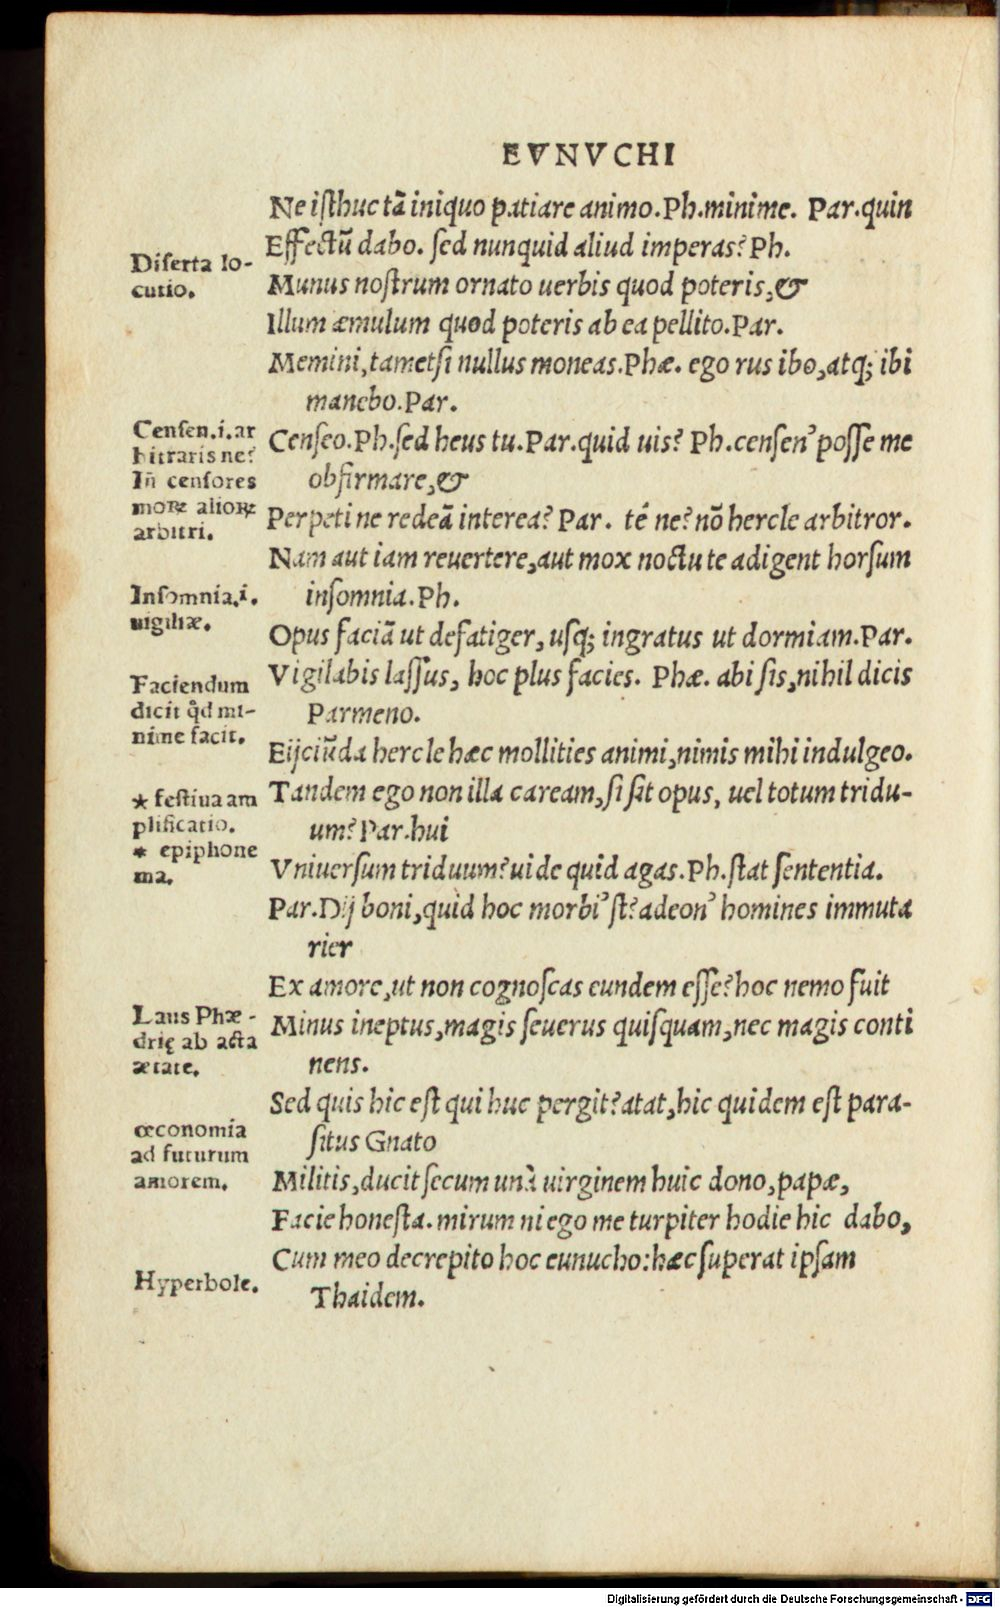 EVNVCHI
Ne isthuc tā iniquo patiare animo.Ph.minime. Par.quin
Effectū dabo. sed nunquid aliud imperas? Ph.
Diserta lo-
cutio.
Munus nostrum ornato uerbis quod poteris,&
Illum æmulum quod poteris ab ea pellito.Par.
Memini,tametsi nullus moneas.Phæ. ego rus ibo,atq; ibi
manebo.Par.
Censen.i.ar
bitraris ne?
Iñ censores
moꝝ alioꝝ
arbitri.
Censeo.Ph.sed heus tu.Par.quid uis? Ph.censen' posse me
obfirmare,&
Perpeti ne redeā interea? Par. té ne? nō hercle arbitror.
Nam aut iam reuertere,aut mox noctu te adigent horsum
Insomnia.i.
uigiliæ.
insomnia.Ph.
Opus faciā ut defatiger, usq; ingratus ut dormiam.Par.
Faciendum
dicit qd̄ mi-
nime facit.
Vigilabis lassus, hoc plus facies. Phæ. abi sis,nihil dicis
Parmeno.
Eijciūda hercle hæc mollities animi,nimis mihi indulgeo.
* festiua am
plificatio.
* epiphone
ma.
Tandem ego non illa caream,si sit opus, uel totum tridu-
um? Par.hui
Vniuersum triduum? uide quid agas.Ph.stat sententia.
Par.Dij boni,quid hoc morbi' st? adeon' homines immuta
rier
Ex amore,ut non cognoscas eundem esse? hoc nemo fuit
Laus Phæ-
drię ab acta
ætate.
Minus ineptus,magis seuerus quisquam,nec magis conti
nens.
Sed quis hic est qui huc pergit? atat,hic quidem est para-
situs Gnato
œconomia
ad futurum
amorem.
Militis,ducit secum unà uirginem huic dono,papæ,
Facie honesta. mirum ni ego me turpiter hodie hic dabo,
Cum meo decrepito hoc eunucho:hæc superat ipsam
Hyperbole.
Thaidem.
Digitalisierung gefördert durch die Deutsche Forschungsgemeinschaft - DFG